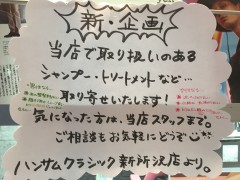 新・企画
当店で取り扱いのある
シャンプー・トリートメントなど…
取り寄せいたします!
気になった方は、当店スタッフまで。
ご相談もお気軽にどうぞ
ハンサムクラシック新所沢店より。